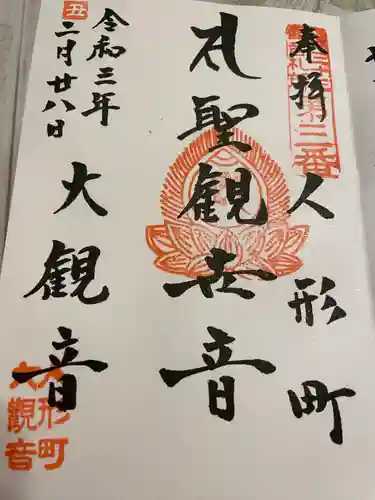 奉拝 人形町
第三番
聖観世音
令和三年
丑
二月廿八日
大観音
人形町
大観音